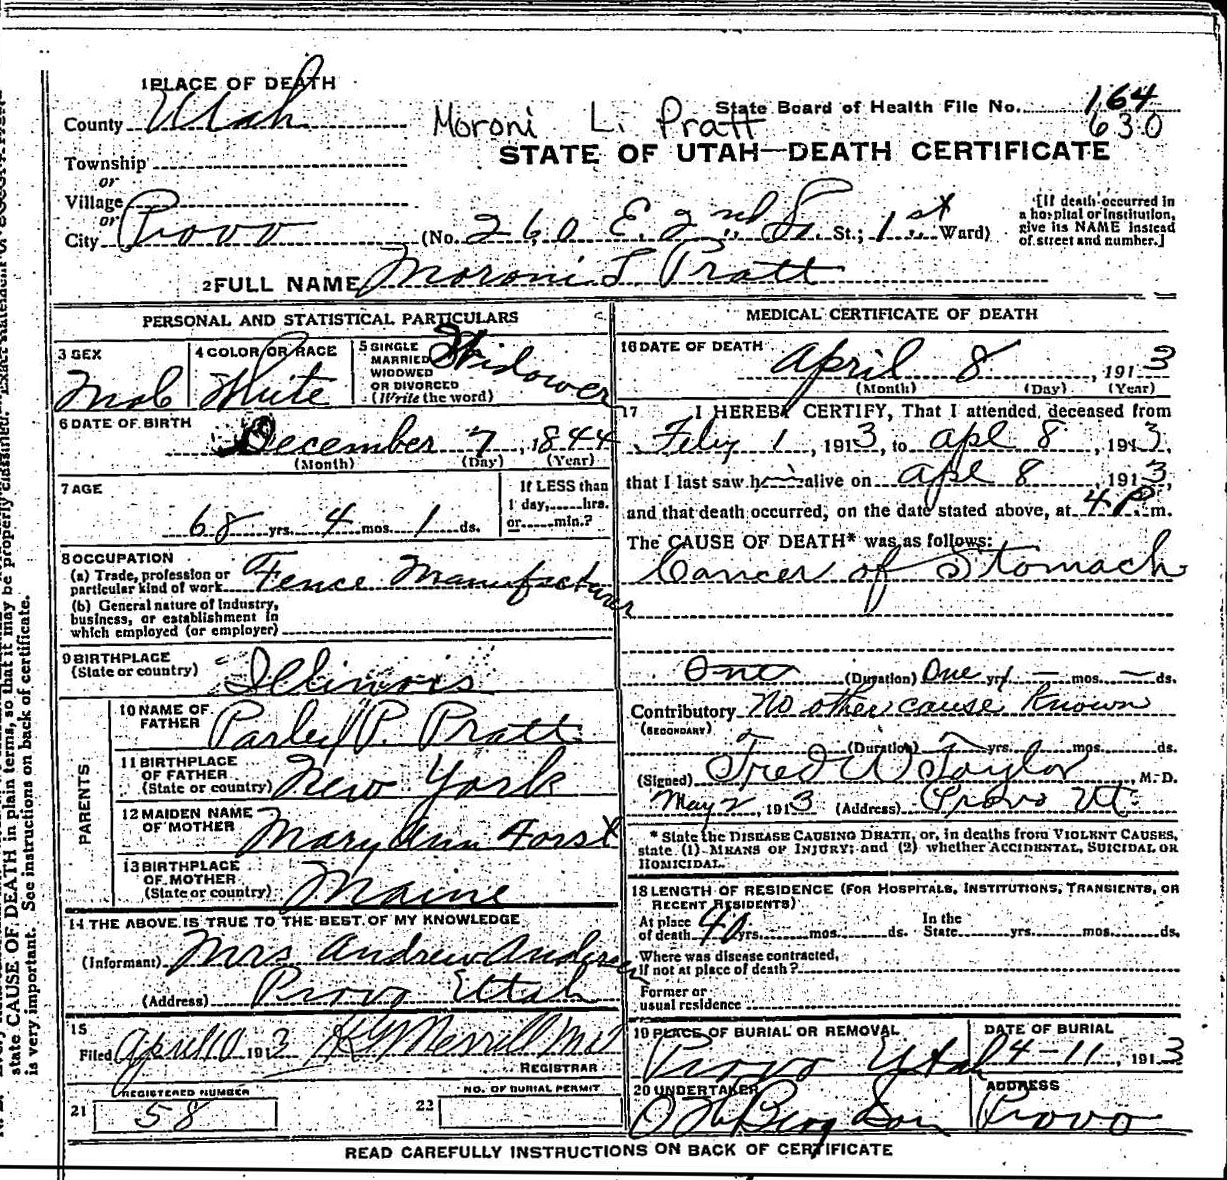 1 PLACE OF DEATH
County Utah
Moroni L. Pratt
State Board of Health File No. 164
630
Township
or
Village
or
City Provo
STATE OF UTAH—DEATH CERTIFICATE
(No. 260 E. 2nd So. St.; 1st Ward)
[If death occurred in
a hospital or institution,
give its NAME instead
of street and number.]
2 FULL NAME Moroni L Pratt
PERSONAL AND STATISTICAL PARTICULARS
3 SEX
Male
4 COLOR OR RACE
White
5 SINGLE
MARRIED
WIDOWED
OR DIVORCED
(Write the word)
Widower
6 DATE OF BIRTH
December 7, 1844
(Month) (Day) (Year)
7 AGE
68 yrs. 4 mos. 1 ds.
If LESS than
1 day,......hrs.
or......min.?
8 OCCUPATION
(a) Trade, profession or
particular kind of work Fence Manufacturer
(b) General nature of Industry,
business, or establishment in
which employed (or employer)
9 BIRTHPLACE
(State or country) Illinois
PARENTS
10 NAME OF
FATHER Parley P. Pratt
11 BIRTHPLACE
OF FATHER
(State or country) New York
12 MAIDEN NAME
OF MOTHER Mary Ann Forst
13 BIRTHPLACE
OF MOTHER
(State or country) Maine
14 THE ABOVE IS TRUE TO THE BEST OF MY KNOWLEDGE
(Informant) Mrs Andrew Anderson
(Address) Provo Utah
15
Filed April 10 1913 Merrill MD
REGISTRAR
REGISTERED NUMBER
21 58
NO. OF BURIAL PERMIT
22
MEDICAL CERTIFICATE OF DEATH
16 DATE OF DEATH
April 8, 1913
(Month) (Day) (Year)
17 I HEREBY CERTIFY, That I attended deceased from
Feby 1, 1913, to Apl 8, 1913,
that I last saw him alive on Apl 8, 1913,
and that death occurred, on the date stated above, at 4 P m.
The CAUSE OF DEATH* was as follows:
Cancer of Stomach
One (Duration) One yrs — mos. — ds.
Contributory No other cause known
(SECONDARY)
(Duration) yrs. mos. ds.
(Signed) Fred W Taylor, M. D.
May 2, 1913 (Address) Provo Ut.
* State the DISEASE CAUSING DEATH, or, in deaths from VIOLENT CAUSES,
state (1) MEANS OF INJURY; and (2) whether ACCIDENTAL, SUICIDAL OR
HOMICIDAL.
18 LENGTH OF RESIDENCE (FOR HOSPITALS, INSTITUTIONS, TRANSIENTS, OR
RECENT RESIDENTS)
At place
of death 40 yrs. mos. ds.
In the
State yrs. mos. ds.
Where was disease contracted,
if not at place of death?
Former or
usual residence
19 PLACE OF BURIAL OR REMOVAL
Provo Utah
DATE OF BURIAL
4-11, 1913
20 UNDERTAKER
Berg Son
ADDRESS
Provo
READ CAREFULLY INSTRUCTIONS ON BACK OF CERTIFICATE
state CAUSE OF DEATH in plain terms, so that it may be properly classified.
is very important. See instructions on back of certificate.